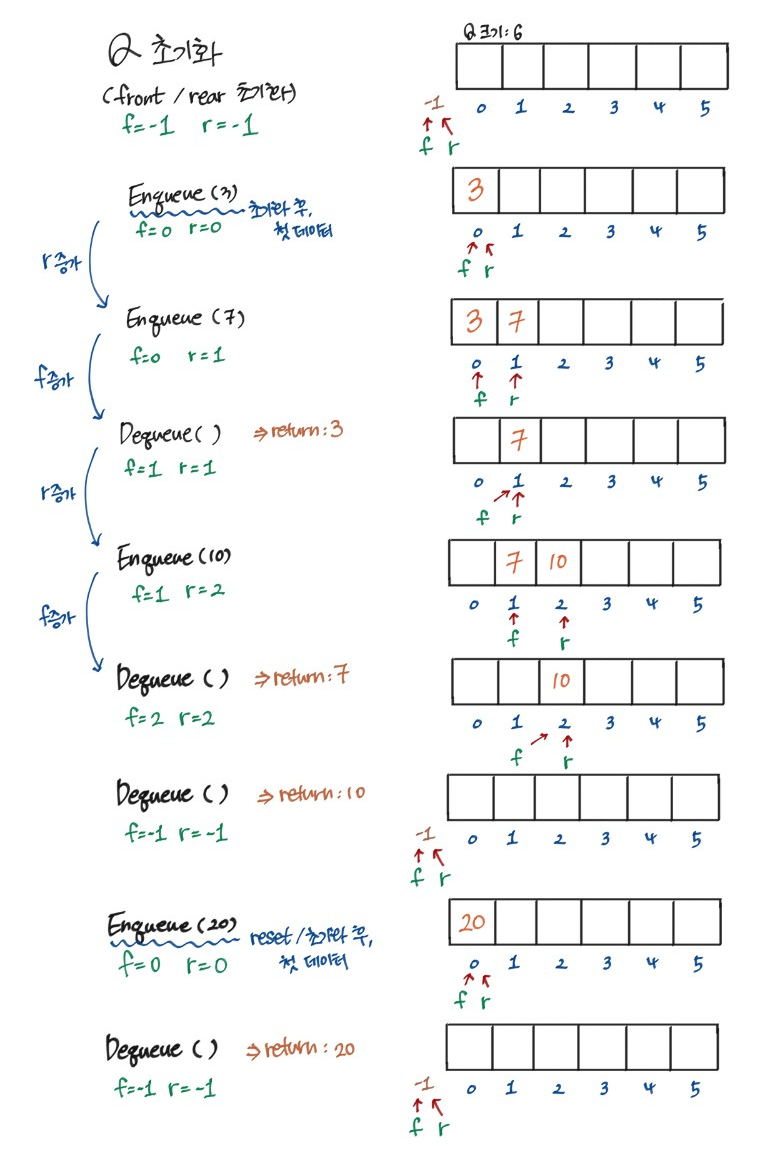 Q 초기화
(front / rear 초기화)
f=-1 r=-1
Q 크기: 6
-1 0 1 2 3 4 5
f r
Enqueue (3)
초기화 후,
첫 데이터
f=0 r=0
3
0 1 2 3 4 5
f r
r증가
Enqueue (7)
f=0 r=1
3 7
0 1 2 3 4 5
f r
f증가
Dequeue( ) ⇒ return: 3
f=1 r=1
7
0 1 2 3 4 5
f r
r증가
Enqueue (10)
f=1 r=2
7 10
0 1 2 3 4 5
f r
f증가
Dequeue ( ) ⇒ return: 7
f=2 r=2
10
0 1 2 3 4 5
f r
Dequeue ( ) ⇒ return: 10
f=-1 r=-1
-1 0 1 2 3 4 5
f r
Enqueue (20)
reset / 초기화 후,
첫 데이터
f=0 r=0
20
0 1 2 3 4 5
f r
Dequeue ( ) ⇒ return: 20
f=-1 r=-1
-1 0 1 2 3 4 5
f r